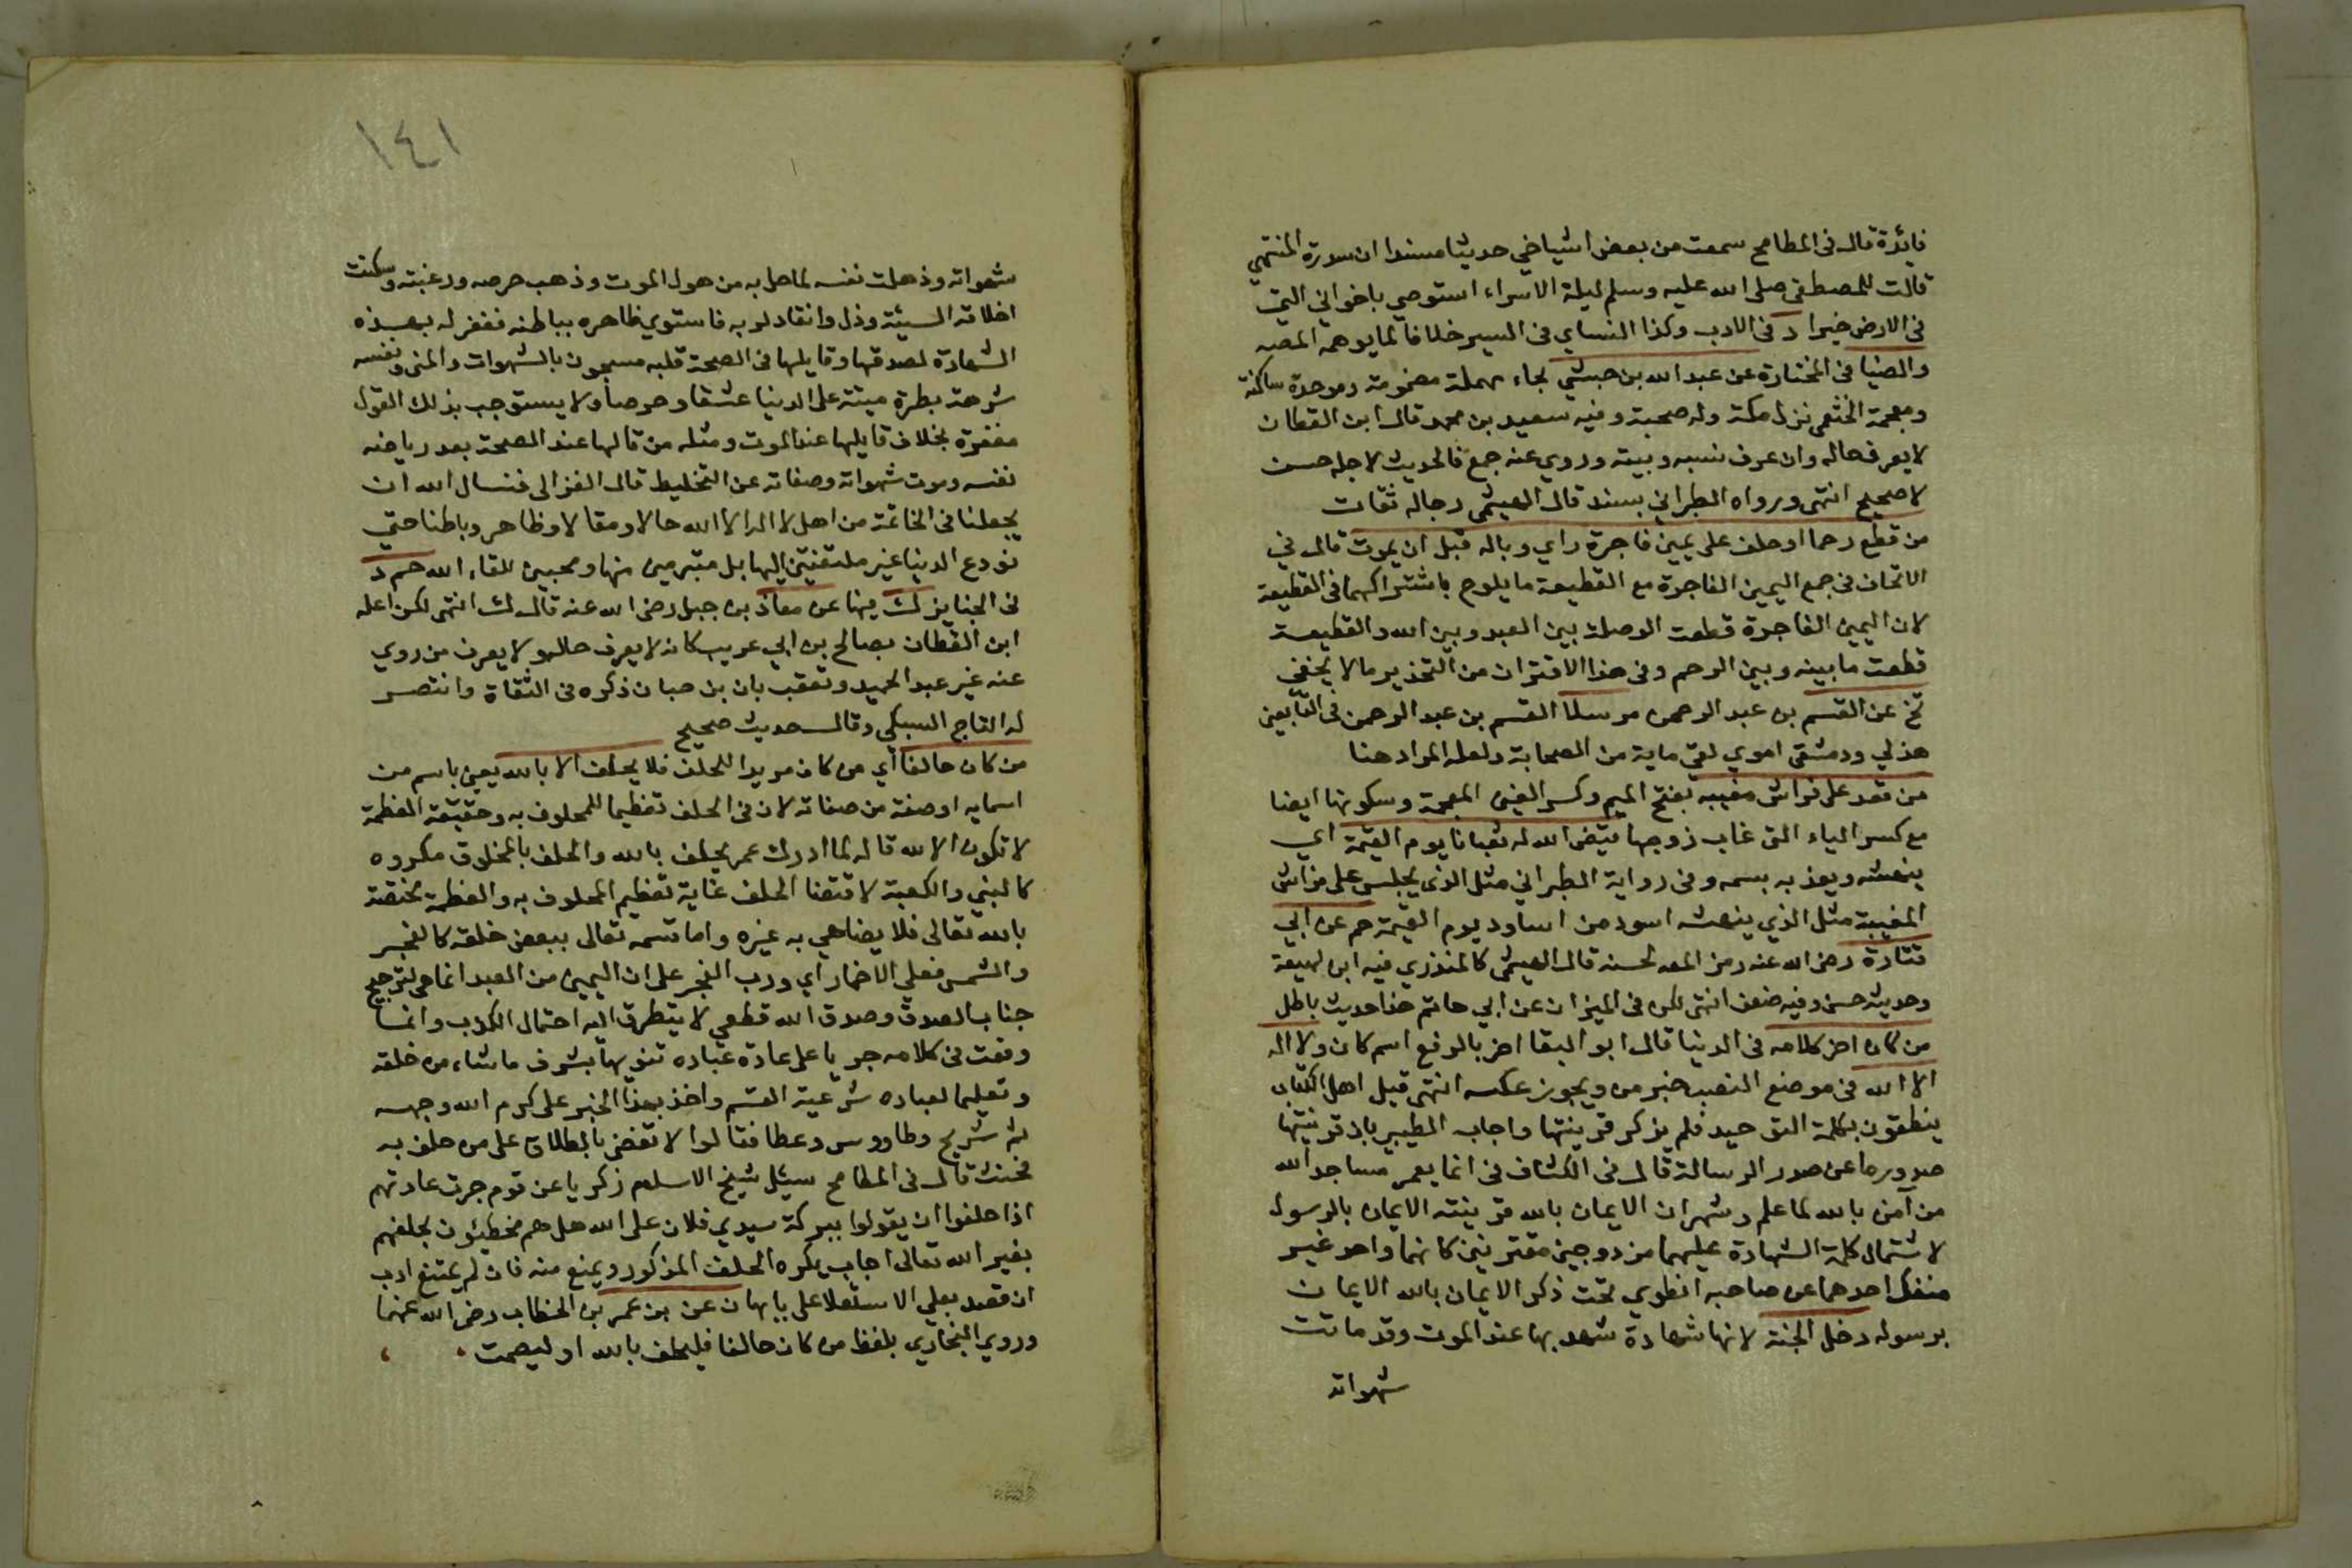 فائدة قال فى المطامح سمعت من بعض اشياخي حديثا مسندا ان سدرة المنتهي
قالت للمصطفى صلى الله عليه وسلم ليلة الاسراء استوصي باخواني التى
فى الارض خيرا د فى الادب وكذا النساي فى السير خلافا لما يوهمه المصه
والضيا فى المختارة عن عبد الله بن حبشي بحاء مهملة مضمومة وموحدة ساكنة
ومعجمة الخثعمى نزل مكة وله صحبة وفيه سعيد بن محمد قال ابن القطان
لا يعرف حاله وان عرف نسبه وبيته وروي عنه جمع فالحديث لاجله حسن
لا صحيح انتهى ورواه الطبراني بسند قال الهيثمى رجاله ثقات
من قطع رحما او حلف على يمين فاجرة راي وباله قبل ان يموت قال في
الاتحاف فى جمع اليمين الفاجرة مع القطيعة ما يلوح باشتراكهما فى القطيعة
لان اليمين الفاجرة قطعت الوصلة بين العبد وبين الله والقطيعة
قطعت ما بينه وبين الرحم وفى هذا الاقتران من التحذير ما لا يخفى
تخ عن القسم بن عبد الرحمن مرسلا القسم بن عبد الرحمن فى التابعين
هذلي ودمشقى اموي لقى ماية من الصحابة ولعله المراد هنا
من قعد على فراش مغيبه بفتح الميم وكسر الغين المعجمة وسكونها ايضا
مع كسر الياء التى غاب زوجها قيض الله له ثعبانا يوم القيمة اي
ينهشه ويعذبه بسمه وفى رواية الطبراني مثل الذى يجلس على فراش
المغيبة مثل الذي ينهشه اسود من اساود يوم القيمة حم عن ابي
قتادة رضى الله عنه رمز المصه لحسنه قال الهيثمى كالمنذري فيه ابن لهيعة
وحديثه حسن وفيه ضعف انتهى لكن فى الميزان عن ابي حاتم هذا حديث باطل
من كان اخر كلامه فى الدنيا قال ابو البقا اخر بالرفع اسم كان ولا اله
الا الله فى موضع النصب خبر من ويجوز عكسه انتهى قيل اهل الكتاب
ينطقون بكلمة التوحيد فلم يذكر قرينتها واجاب الطيبي بان قرينتها
صدورها عن صدر الرسالة قال فى الكشاف فى انما يعمر مساجد الله
من آمن بالله لما علم وشهر ان الايمان بالله قرينته الايمان بالرسول
لاشتمال كلمة الشهادة عليهما مزدوجين مقترنين كانهما واحد غير
منفك احدهما عن صاحبه انطوي تحت ذكر الايمان بالله الايمان
برسوله دخل الجنة لانها شهادة شهد بها عند الموت وقد ماتت
شهواته
١٤١
شهواته وذهلت نفسه لما حل به من هول الموت وذهب حرصه ورغبته وسكنت
اخلاقه السيئة وذل وانقاد لربه فاستوي ظاهره بباطنه فغفر له بهذه
الشهادة لصدقها وقايلها فى الصحة قلبه مسجون بالشهوات والمنى ونفسه
شرهة بطرة ميتة على الدنيا عشقا وحرصا ولا يستوجب بذلك القول
مغفرة بخلاف قايلها عند الموت ومثله من قالها عند الصحة بعد رياضه
نفسه وموت شهواته وصفاته عن التخليط قال الغزالى فنسال الله ان
يجعلنا فى الخاتمة من اهل لا اله الا الله حالا ومقالا وظاهر وباطنا حتي
نودع الدنيا غير ملتفتين اليها بل متبرمين منها ومحبين للقاء الله حم د
فى الجنايز ك فيها عن معاذ بن جبل رضى الله عنه قال ك انتهى لكن اعله
ابن القطان بصالح بن ابي عريب كانه لا يعرف حاله ولا يعرف من روي
عنه غير عبد الحميد وتعقب بان بن حبان ذكره فى الثقاة وانتصر
له التاج السبكى وقال حديث صحيح
من كان حالفا أي من كان مريدا للحلف فلا يحلف الا بالله يعني باسم من
اسمايه او صفة من صفاته لان فى الحلف تعظيما للمحلوف به وحقيقة العظمة
لا تكون الا لله قاله لما ادرك عمر يحلف بابيه والحلف بالمخلوق مكروه
كالنبي والكعبة لاقتضا الحلف غاية تعظيم المحلوف به والعظمة مختصة
بالله تعالى فلا يضاهي به غيره واما قسمه تعالى ببعض خلقه كالفجر
والشمس فعلي الاضمار اي ورب الفجر على ان اليمين من العبد انما هى لترجيح
جناب الصدق وصدق الله قطعى لا يتطرق اليه احتمال الكذب وانما
وقعت فى كلامه جريا على عادة عباده تنويها بشرف ما شاء من خلقه
وتعليما لعباده شرعية القسم واخذ بهذا الخبر على كرم الله وجهه
ثم شريح وطاووس وعطا فقالوا لا تقضى بالطلاق على من حلف به
فحنث قال فى المطامح سيئل شيخ الاسلام زكريا عن قوم جرت عادتهم
اذا حلفوا ان يقولوا ببركة سيدي فلان على الله هل هم مخطيئون بحلفهم
بغير الله تعالى اجاب يكره الحلف المذكور ويمنع منه فان لم يمتنع ادب
ان قصد بعلي الاستعلا على بابها ن عن بن عمر بن الخطاب رضى الله عنهما
وروي البخاري بلفظ من كان حالفا فليحلف بالله او ليصمت